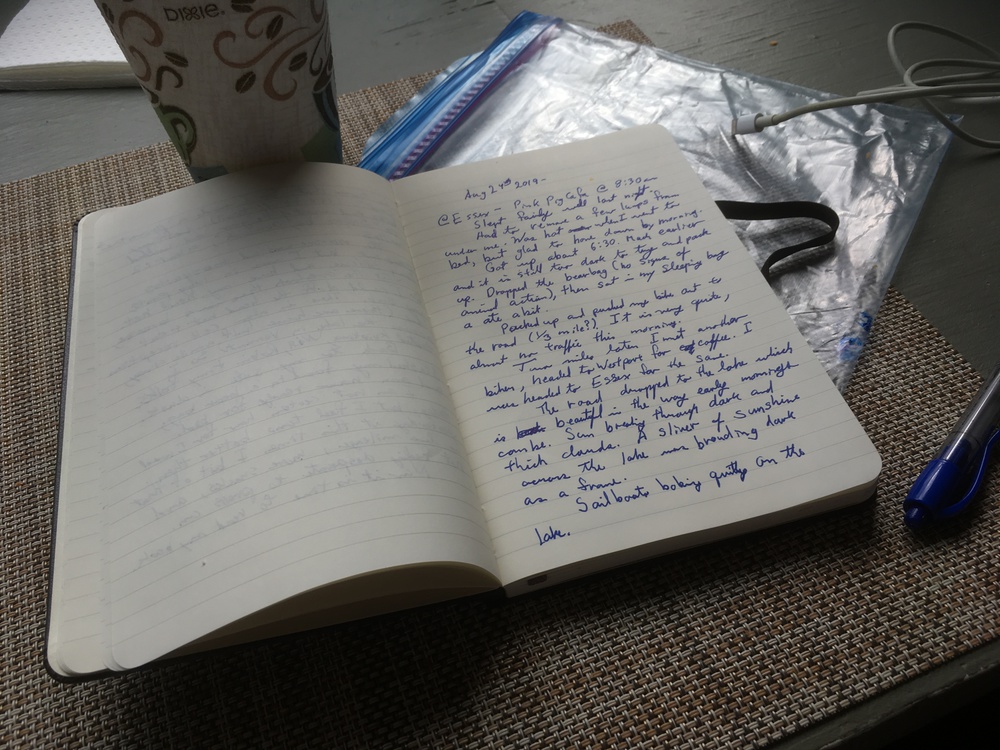 DIXIE.
Aug 29th 2019-
@Essex - Pink Pig Cafe @ 8:30am
Slept fairly well last night.
Had to remove a few lumps from
under me. Was hot when I went to
bed, but glad to have down by morning.
Got up about 6:30. Much earlier
and it is still too dark to try and pack
up. Dropped the bearbag (no signs of
animal action), then sat in my sleeping bag
a ate a bit.
Packed up and pushed my bike out to
the road (1/3 mile?) It is very quite,
almost no traffic this morning.
Two miles later I met another
biker, headed to Westport for coffee. I
was headed to Essex for the same.
The road dropped to the lake which
is beautiful in the way early mornings
can be. Sun breaking through dark and
thick clouds. A sliver of sunshine
across the lake was brooding dark
as a frame.
Sailboats bobing quitly on the
lake.